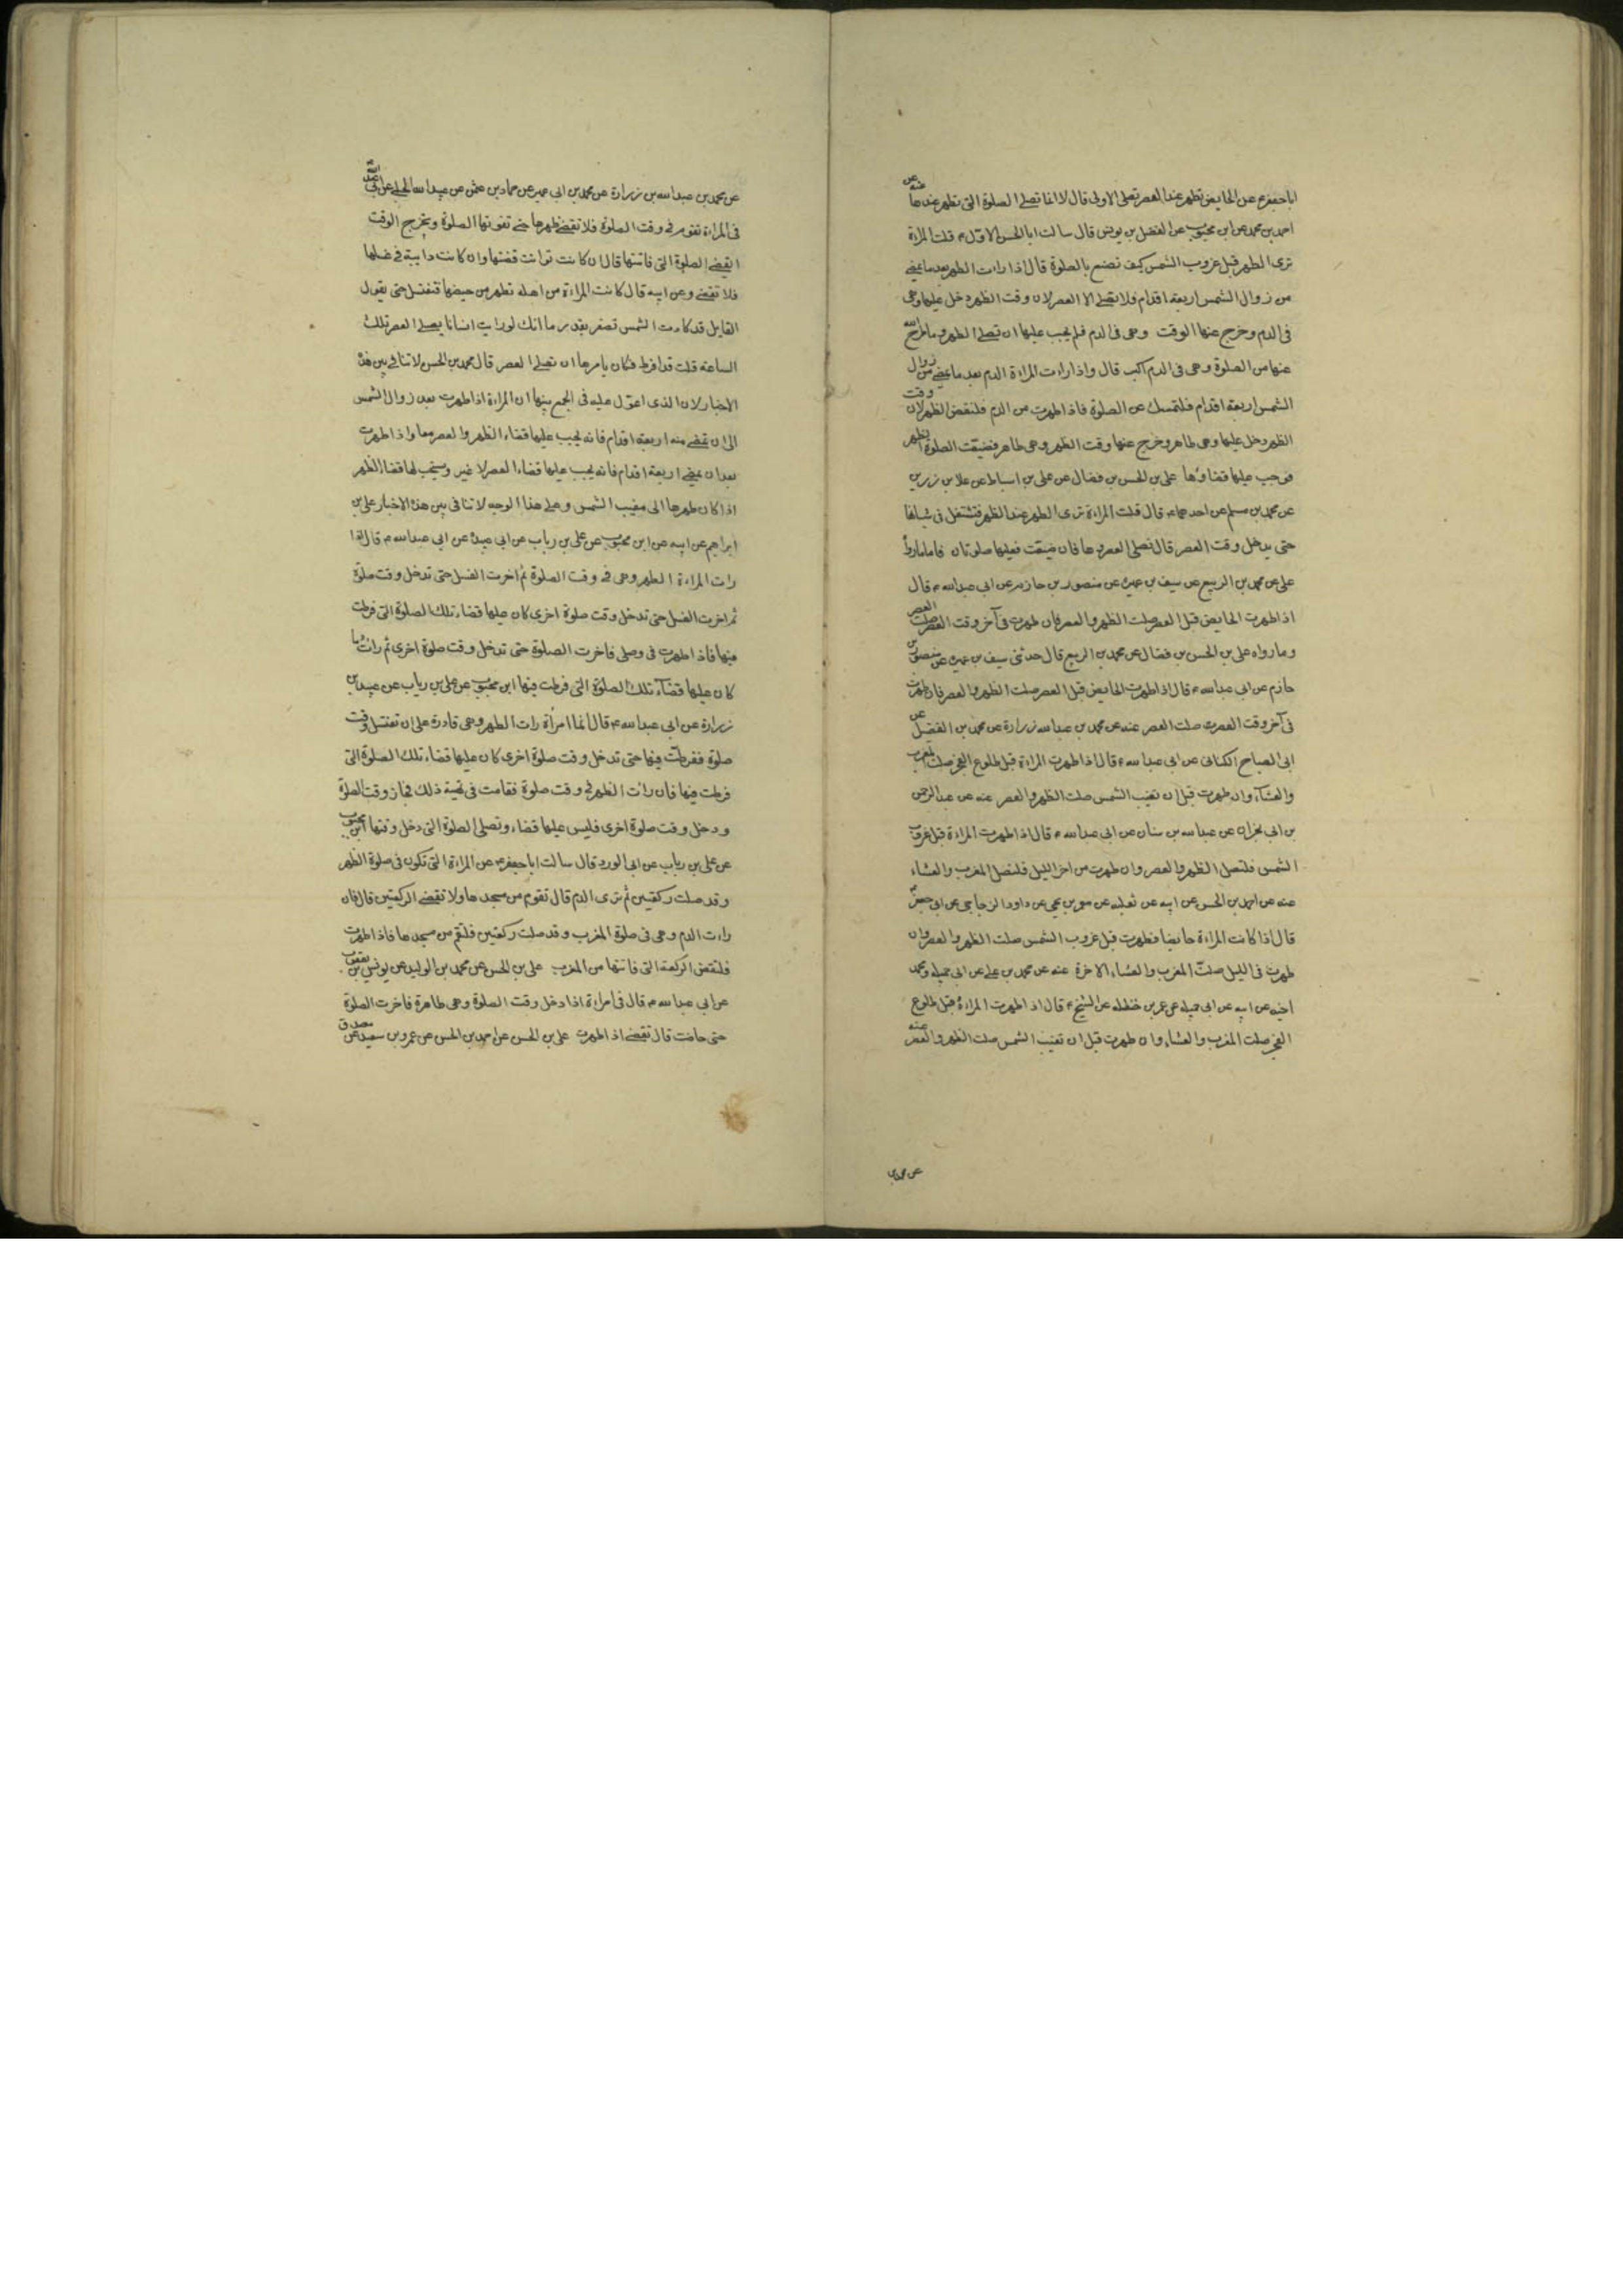 اباجعفر ع عن الحايض تطهر عند العصر تصلى الاولى قال لا انما تصلى الصلوة التى تطهر عندها عنه عن
احمد بن محمد عن ابن محبوب عن الفضل بن يونس قال سالت ابا الحسن الاول ع قلت المراءة
ترى الطهر قبل غروب الشمس كيف تصنع بالصلوة قال اذا رات الطهر بعد ما يمضى
من زوال الشمس اربعة اقدام فلا تصلى الا العصر لان وقت الظهر دخل عليها وهى
فى الدم وخرج عنها الوقت وهى فى الدم فلم يجب عليها ان تصلى الظهر وما طرح الله
عنها من الصلوة وهى فى الدم اكثر قال واذا رات المراءة الدم بعد ما يمضى من زوال
الشمس اربعة اقدام فلتمسك عن الصلوة فاذا طهرت من الدم فلتقض الظهر لان وقت
الظهر دخل عليها وهى طاهر وخرج عنها وقت الظهر وهى طاهر فضيعت الصلوة الظهر
فوجب عليها قضاؤها على بن الحسن بن فضال عن على بن اسباط عن علا بن زرين
عن محمد بن مسلم عن احدهما ع قال قلت المراءة ترى الطهر عند الظهر فتشتغل فى شانها
حتى يدخل وقت العصر قال تصلى العصر وحدها فان ضيعت فعليها صلوتان فاما ما رواه
على عن محمد بن الربيع عن سيف بن عميرة عن منصور بن حازم عن ابى عبدالله ع قال
اذا طهرت الحايض قبل العصر صلت الظهر والعصر فان طهرت فى آخر وقت العصر صلت العصر
وما رواه على بن الحسن بن فضال عن محمد بن الربيع قال حدثنى سيف بن عميرة عن منصور بن
حازم عن ابى عبدالله ع قال اذا طهرت الحايض قبل العصر صلت الظهر والعصر فان طهرت
فى آخر وقت العصر صلت العصر عنه عن محمد بن عبدالله زرارة عن محمد بن الفضل عن
ابى الصباح الكنانى عن ابى عبدالله ع قال اذا طهرت المراءة قبل طلوع الفجر صلت المغرب
والعشآء وان طهرت قبل ان تغيب الشمس صلت الظهر والعصر عنه عن عبدالرحمن
بن ابى نجران عن عبدالله بن سنان عن ابى عبدالله ع قال اذا طهرت المراءة قبل غروب
الشمس فلتصل الظهر والعصر وان طهرت من اخر الليل فلتصل المغرب والعشاء
عنه عن احمد بن الحسن عن ابيه عن ثعلبه عن معمر بن يحيى عن داود الزجاجى عن ابى جعفر ع
قال اذا كانت المراءة حايضا فطهرت قبل غروب الشمس صلت الظهر والعصر وان
طهرت فى الليل صلت المغرب والعشاء الاخرة عنه عن محمد بن على عن ابى جميله ومحمد
اخيه عن ابيه عن ابى جميله عن عمر بن حنظله عن الشيخ ع قال اذا طهرت المراءة قبل طلوع
الفجر صلت المغرب والعشاء وان طهرت قبل ان تغيب الشمس صلت الظهر والعصر عنه
عن محمد بن
عن محمد بن عبدالله بن زرارة عن محمد بن ابى عمير عن حماد بن عثمن عن عبيدالله الحلبى عن ابى عبدالله ع
فى المراءة تقوم فى وقت الصلوة فلا تقضى طهرها حتى تفوتها الصلوة ويخرج الوقت
اتقضى الصلوة التى فاتتها قال ان كانت توانت قضتها وان كانت دايبة فى غسلها
فلا تقضى وعن ابيه قال كانت المراءة من اهله تطهر من حيضها فتغتسل حتى يقول
القايل قد كادت الشمس تصفر بقدر ما انك لو رايت انسانا يصلى العصر تلك
الساعة قلت قد افرط فكان يامرها ان تصلى العصر قال محمد بن الحسن لا تنافى بين هذه
الاخبار لان الذى اعول عليه فى الجمع بينها ان المراءة اذا طهرت بعد زوال الشمس
الى ان تمضى منه اربعة اقدام فانه يجب عليها قضاء الظهر والعصر معا واذا طهرت
بعد ان يمضى اربعة اقدام فانه يجب عليها قضاء العصر لا غير ويستحب لها قضاء الظهر
اذا كان طهرها الى مغيب الشمس وعلى هذا الوجه لا تنافى بين هذه الاخبار على بن
ابراهيم عن ابيه عن ابن محبوب عن على بن رياب عن ابى عبيدة عن ابى عبدالله ع قال اذا
رات المراءة الطهر وهى فى وقت الصلوة ثم اخرت الغسل حتى تدخل وقت صلوة
ثم اخرت الغسل حتى تدخل وقت صلوة اخرى كان عليها قضاء تلك الصلوة التى فرطت
فيها فاذا طهرت فى وصلى فاخرت الصلوة حتى تدخل وقت صلوة اخرى ثم رات دما
كان عليها قضآء تلك الصلوة التى فرطت فيها ابن محبوب عن على بن رياب عن عبيد بن
زرارة عن ابى عبدالله ع قال ايما امراة رات الطهر وهى قادرة على ان تغتسل وقت
صلوة ففرطت فيها حتى تدخل وقت صلوة اخرى كان عليها قضاء تلك الصلوة التى
فرطت فيها فان رات الطهر فى وقت صلوة فقامت فى تهيئة ذلك فجاز وقت الصلوة
ودخل وقت صلوة اخرى فليس عليها قضاء وتصلى الصلوة التى دخل وقتها ابن محبوب
عن على بن رياب عن ابى الورد قال سالت اباجعفر ع عن المراءة التى تكون فى صلوة الظهر
وقد صلت ركعتين ثم ترى الدم قال تقوم من مسجدها ولا تقضى الركعتين قال فان
راءت الدم وهى فى صلوة المغرب وقد صلت ركعتين فلتقم من مسجدها فاذا طهرت
فلتقض الركعة التى فاتتها من المغرب على بن الحسن عن محمد بن الوليد عن يونس بن يعقوب
عن ابى عبدالله ع قال فى امراءة اذا دخل وقت الصلوة وهى طاهرة فاخرت الصلوة
حتى حاضت قال تقضى اذا طهرت على بن الحسن عن احمد بن الحسن عن عمرو بن سعيد عن مصدق